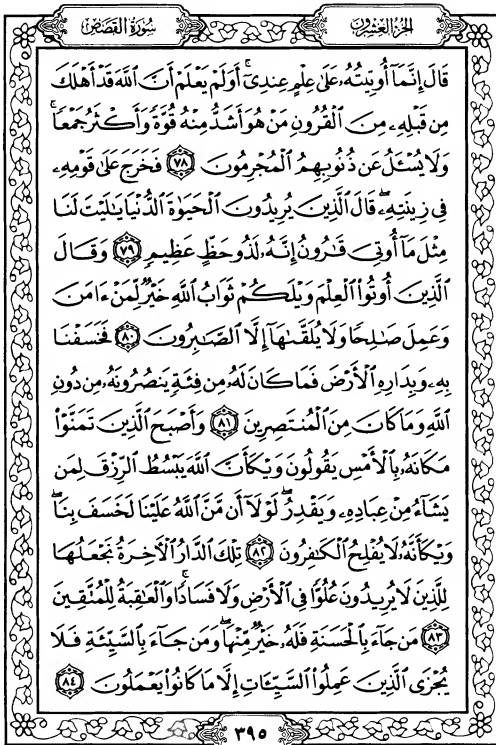 سُورَةُ القَصَصِ
الجُزءُ العِشْرُونَ
قَالَ إِنَّمَآ أُوتِيتُهُۥ عَلَىٰ عِلْمٍ عِندِيٓۚ أَوَلَمْ يَعْلَمْ أَنَّ ٱللَّهَ قَدْ أَهْلَكَ
مِن قَبْلِهِۦ مِنَ ٱلْقُرُونِ مَنْ هُوَ أَشَدُّ مِنْهُ قُوَّةً وَأَكْثَرُ جَمْعًاۚ
وَلَا يُسْـَٔلُ عَن ذُنُوبِهِمُ ٱلْمُجْرِمُونَ ٧٨ فَخَرَجَ عَلَىٰ قَوْمِهِۦ
فِي زِينَتِهِۦۖ قَالَ ٱلَّذِينَ يُرِيدُونَ ٱلْحَيَوٰةَ ٱلدُّنْيَا يَٰلَيْتَ لَنَا
مِثْلَ مَآ أُوتِيَ قَٰرُونُ إِنَّهُۥ لَذُو حَظٍّ عَظِيمٍ ٧٩ وَقَالَ
ٱلَّذِينَ أُوتُوا۟ ٱلْعِلْمَ وَيْلَكُمْ ثَوَابُ ٱللَّهِ خَيْرٌ لِّمَنْ ءَامَنَ
وَعَمِلَ صَٰلِحًا وَلَا يُلَقَّىٰهَآ إِلَّا ٱلصَّٰبِرُونَ ٨٠ فَخَسَفْنَا
بِهِۦ وَبِدَارِهِ ٱلْأَرْضَ فَمَا كَانَ لَهُۥ مِن فِئَةٍ يَنصُرُونَهُۥ مِن دُونِ
ٱللَّهِ وَمَا كَانَ مِنَ ٱلْمُنتَصِرِينَ ٨١ وَأَصْبَحَ ٱلَّذِينَ تَمَنَّوْا۟
مَكَانَهُۥ بِٱلْأَمْسِ يَقُولُونَ وَيْكَأَنَّ ٱللَّهَ يَبْسُطُ ٱلرِّزْقَ لِمَن
يَشَآءُ مِنْ عِبَادِهِۦ وَيَقْدِرُۖ لَوْلَآ أَن مَّنَّ ٱللَّهُ عَلَيْنَا لَخَسَفَ بِنَاۖ
وَيْكَأَنَّهُۥ لَا يُفْلِحُ ٱلْكَٰفِرُونَ ٨٢ تِلْكَ ٱلدَّارُ ٱلْأَخِرَةُ نَجْعَلُهَا
لِلَّذِينَ لَا يُرِيدُونَ عُلُوًّا فِي ٱلْأَرْضِ وَلَا فَسَادًاۚ وَٱلْعَٰقِبَةُ لِلْمُتَّقِينَ
٨٣ مَن جَآءَ بِٱلْحَسَنَةِ فَلَهُۥ خَيْرٌ مِّنْهَاۖ وَمَن جَآءَ بِٱلسَّيِّئَةِ فَلَا
يُجْزَى ٱلَّذِينَ عَمِلُوا۟ ٱلسَّيِّـَٔاتِ إِلَّا مَا كَانُوا۟ يَعْمَلُونَ ٨٤
٣٩٥